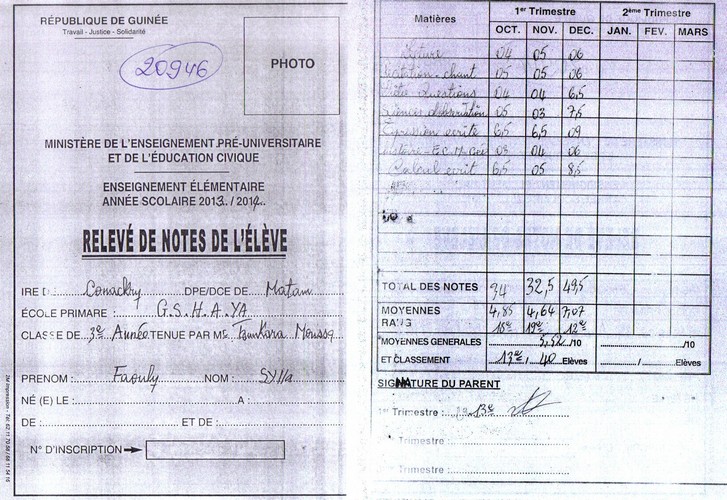 RÉPUBLIQUE DE GUINÉE
Travail - Justice - Solidarité
20946
PHOTO
MINISTÈRE DE L'ENSEIGNEMENT PRÉ-UNIVERSITAIRE
ET DE L'ÉDUCATION CIVIQUE
ENSEIGNEMENT ÉLÉMENTAIRE
ANNÉE SCOLAIRE 2013../2014..
RELEVÉ DE NOTES DE L'ÉLÈVE
IRE DE Conackry DPE/DCE DE Matam
ÉCOLE PRIMAIRE : G.S.H.A.YA
CLASSE DE 3e Année TENUE PAR Mr Tounkara Moussa
PRENOM : Faouly NOM : SYlla
NÉ (E) LE : A :
DE : ET DE :
N° D'INSCRIPTION
Matières 1er Trimestre 2ème Trimestre
OCT. NOV. DEC. JAN. FEV. MARS
04 05 06
Récitation-chant 05 05 06
Dictée questions 04 04 6,5
Sciences d'observation 05 03 7,5
Expression écrite 6,5 6,5 09
Histoire-E.C.M-Géo 03 04 06
Calcul ecrit 6,5 05 8,5
TOTAL DES NOTES 34 32,5 49,5
MOYENNES 4,85 4,64 7,07
RANG 18e 19e 12e
MOYENNES GENERALES 5,52 /10 /10
ET CLASSEMENT 13e / 40 Elèves / Elèves
SIGNATURE DU PARENT
1er Trimestre : 13e
Trimestre :
Trimestre :